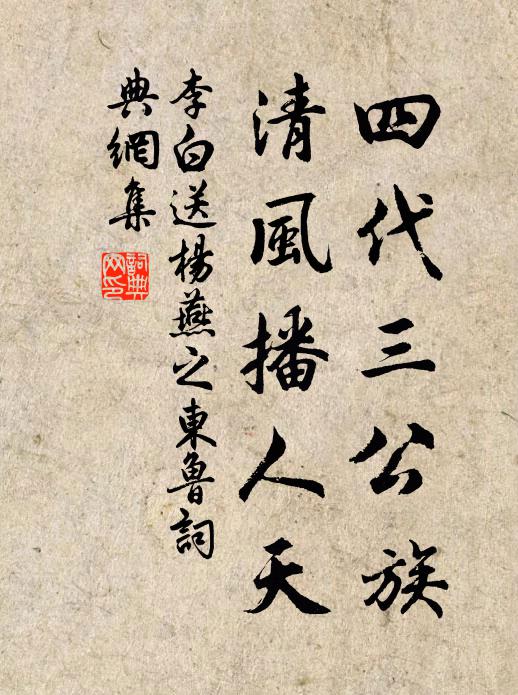 四代三公族
清風播人天
李白送楊燕之東魯詞
典網集
詞典
网印